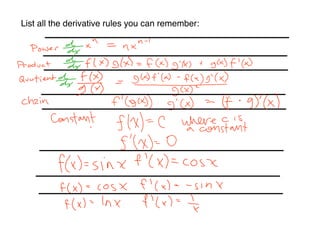 List all the derivative rules you can remember:
Power d/dx x^n = nx^{n-1}
Product d/dx f(x) g(x) = f(x) g'(x) + g(x) f'(x)
Quotient d/dx f(x)/g(x) = g(x) f'(x) - f(x) g'(x) / g(x)^2
chain f'(g(x)) · g'(x) = (f · g)'(x)
Constant f(x) = C where c is a constant
f'(x) = 0
f(x) = sin x f'(x) = cos x
f(x) = cos x f'(x) = - sin x
f(x) = ln x f'(x) = 1/x